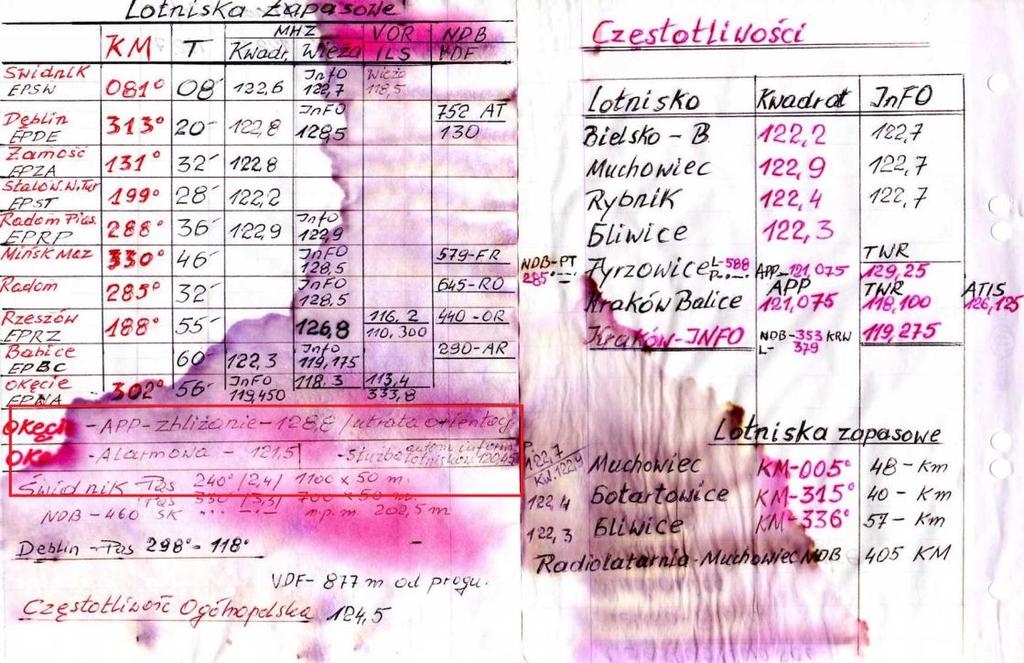 Lotniska Zapasowe
KM T MHZ Kwadr. Wieża VOR ILS NDB VDF
Świdnik EPSW 081° 08' 122,6 InFO 122,7 Wieża 118,5
Dęblin EPDE 313° 20' 122,8 InFO 128,5 752 AT 130
Zamość EPZA 131° 32' 122.8
Stalow. W. Tur EPST 199° 28' 122,2
Radom Pias. EPRP 288° 36' 122,9 InFO 122,9
Mińsk Maz 330° 46' InFO 128,5 579-FR
Radom 285° 32' InFO 128,5 645-RO
Rzeszów EPRZ 188° 55' 126,8 116,2 110,300 440-OR
Babice EPBC 60' 122,3 InFO 119,175 290-AR
Okęcie EPWA 302° 56' InFO 119,450 118.3 113,4 333,8
Okęci - APP - zbliżanie - 128,8 / utrata orientacj
Okę - Alarmowa - 121,5 - Służba
Świdnik Pas 240° (2,4) 1100 x 50 m.
Pas 330° (3,3) 700 x 50 m.
NDB - 460 SK ··· –·– n.p.m 202,5 m
Dęblin - Pas 298° - 118°
VDF - 877 m od progu.
Częstotliwość Ogólnopolska 124,5
Częstotliwości
Lotnisko Kwadrat InFO
Bielsko - B 122,2 122,7
Muchowiec 122,9 122,7
Rybnik 122,4 122,7
Gliwice 122,3
TWR
NDB-PT 285° Pyrzowice L-588 APP-121,075 129,25
APP TWR ATIS
Kraków Balice 121,075 118,100 126,125
Kraków-INFO NDB-353 KRW L- 379 119,275
Lotniska zapasowe
122,7 KW.122,9 Muchowiec KM-005° 48 - Km
122,4 Gotartowice KM-315° 40 - Km
122,3 Gliwice KM-336° 57 - Km
Radiolatarnia - Muchowiec NDB 405 KM